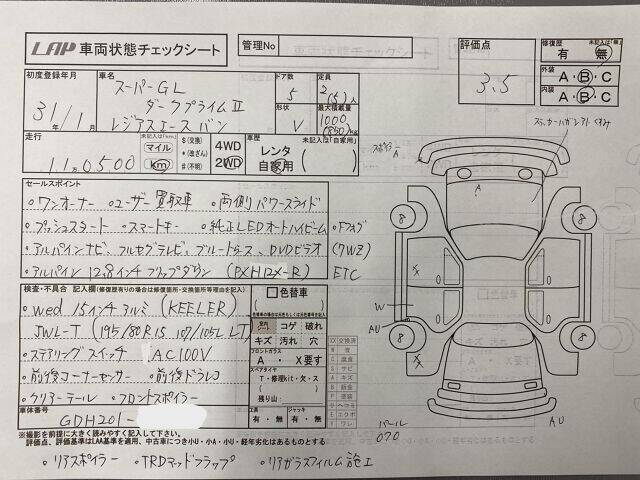 LAP 車両状態チェックシート
管理No
評価点
3.5
修復歴 未記入は「無」
有 無
外装
A・B・C
内装
A・B・C
初度登録年月
31/1月
車名
スーパーGL
ダークプライムⅡ
レジアスエースバン
ドア数
5
定員
2(5)人
形状
V
最大積載量
1000
(850)kg
走行
11.0500
未記入は「km」
マイル
km
$(交換)
*(改ざん)
#(不明)
4WD
2WD
車歴
未記入は「自家用」
レンタ
自家用
セールスポイント
・ワンオーナー ・ユーザー買取車 ・両側パワースライド
・プッシュスタート ・スマートキー ・純正LEDオートハイビーム ・Fフォグ
・アルパインナビ、フルセグテレビ、ブルートゥース、DVDビデオ (7WZ)
・アルパイン 12.8インチフリップダウン (PXH12X-R) ETC
検査・不具合 記入欄(修復歴有りの場合は修復箇所・交換箇所等理由を記入)
・wed 15インチアルミ (KEELER)
JWL-T (195/80R15 107/105L LT)
・ステアリングスイッチ AC100V
・前後コーナーセンサー ・前後ドラレコ
・クリアーテール ・フロントスポイラー
色替車
コゲ 破れ
キズ 汚れ 穴
フロントガラス
A・X要す
スペアタイヤ
T・修理kit・欠・ス
残り山:
工具
有・無
ジャッキ
有・無
XX 交換済
X 要交換
W 波
C 腐食
S サビ
A キズ
B 鈑金
P 塗装
U ヘコミ
E エクボ
Y ワレ
車体番号
GDH201-
※撮影を前提に大きく読みやすく記入して下さい。
評価点、評価基準はLAA基準を適用、中古車につき小U・小A・小U・経年劣化はあるものとする
・リアスポイラー ・TRDマッドフラップ ・リアガラスフィルム施工
スポイラーA
A
8
8
8
8
W
AU
AU
パール
070